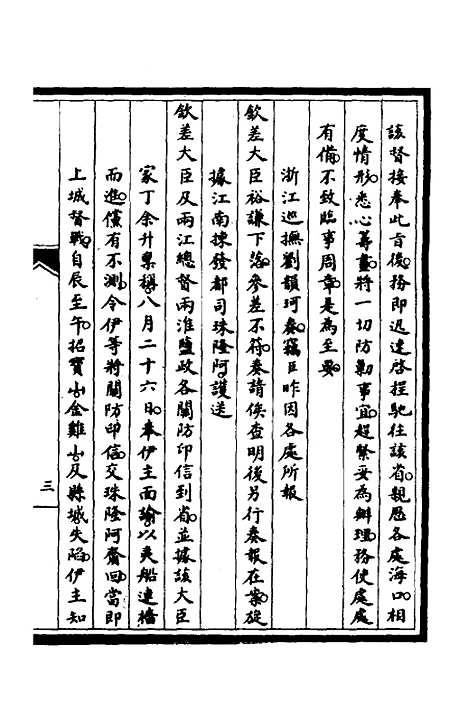 該督接奉此旨後務即迅速啓程馳往該省親歷各處海口相
度情形悉心籌畫將一切防勦事宜趕緊妥為辦理務使處處
有備不致臨事周章是為至要
浙江巡撫劉韻珂奏竊臣昨因各處所報
欽差大臣裕謙下落參差不符奏請俟查明後另行奏報在案旋
據江南揀發都司珠隆阿護送
欽差大臣及兩江總督兩淮鹽政各關防印信到省並據該大臣
家丁余升稟稱八月二十六日奉伊主面諭以夷船連檣
而進儻有不測令伊等將關防印信交珠隆阿齎回當即
上城督戰自辰至午招寶山金雞山及縣城失陷伊主知
三